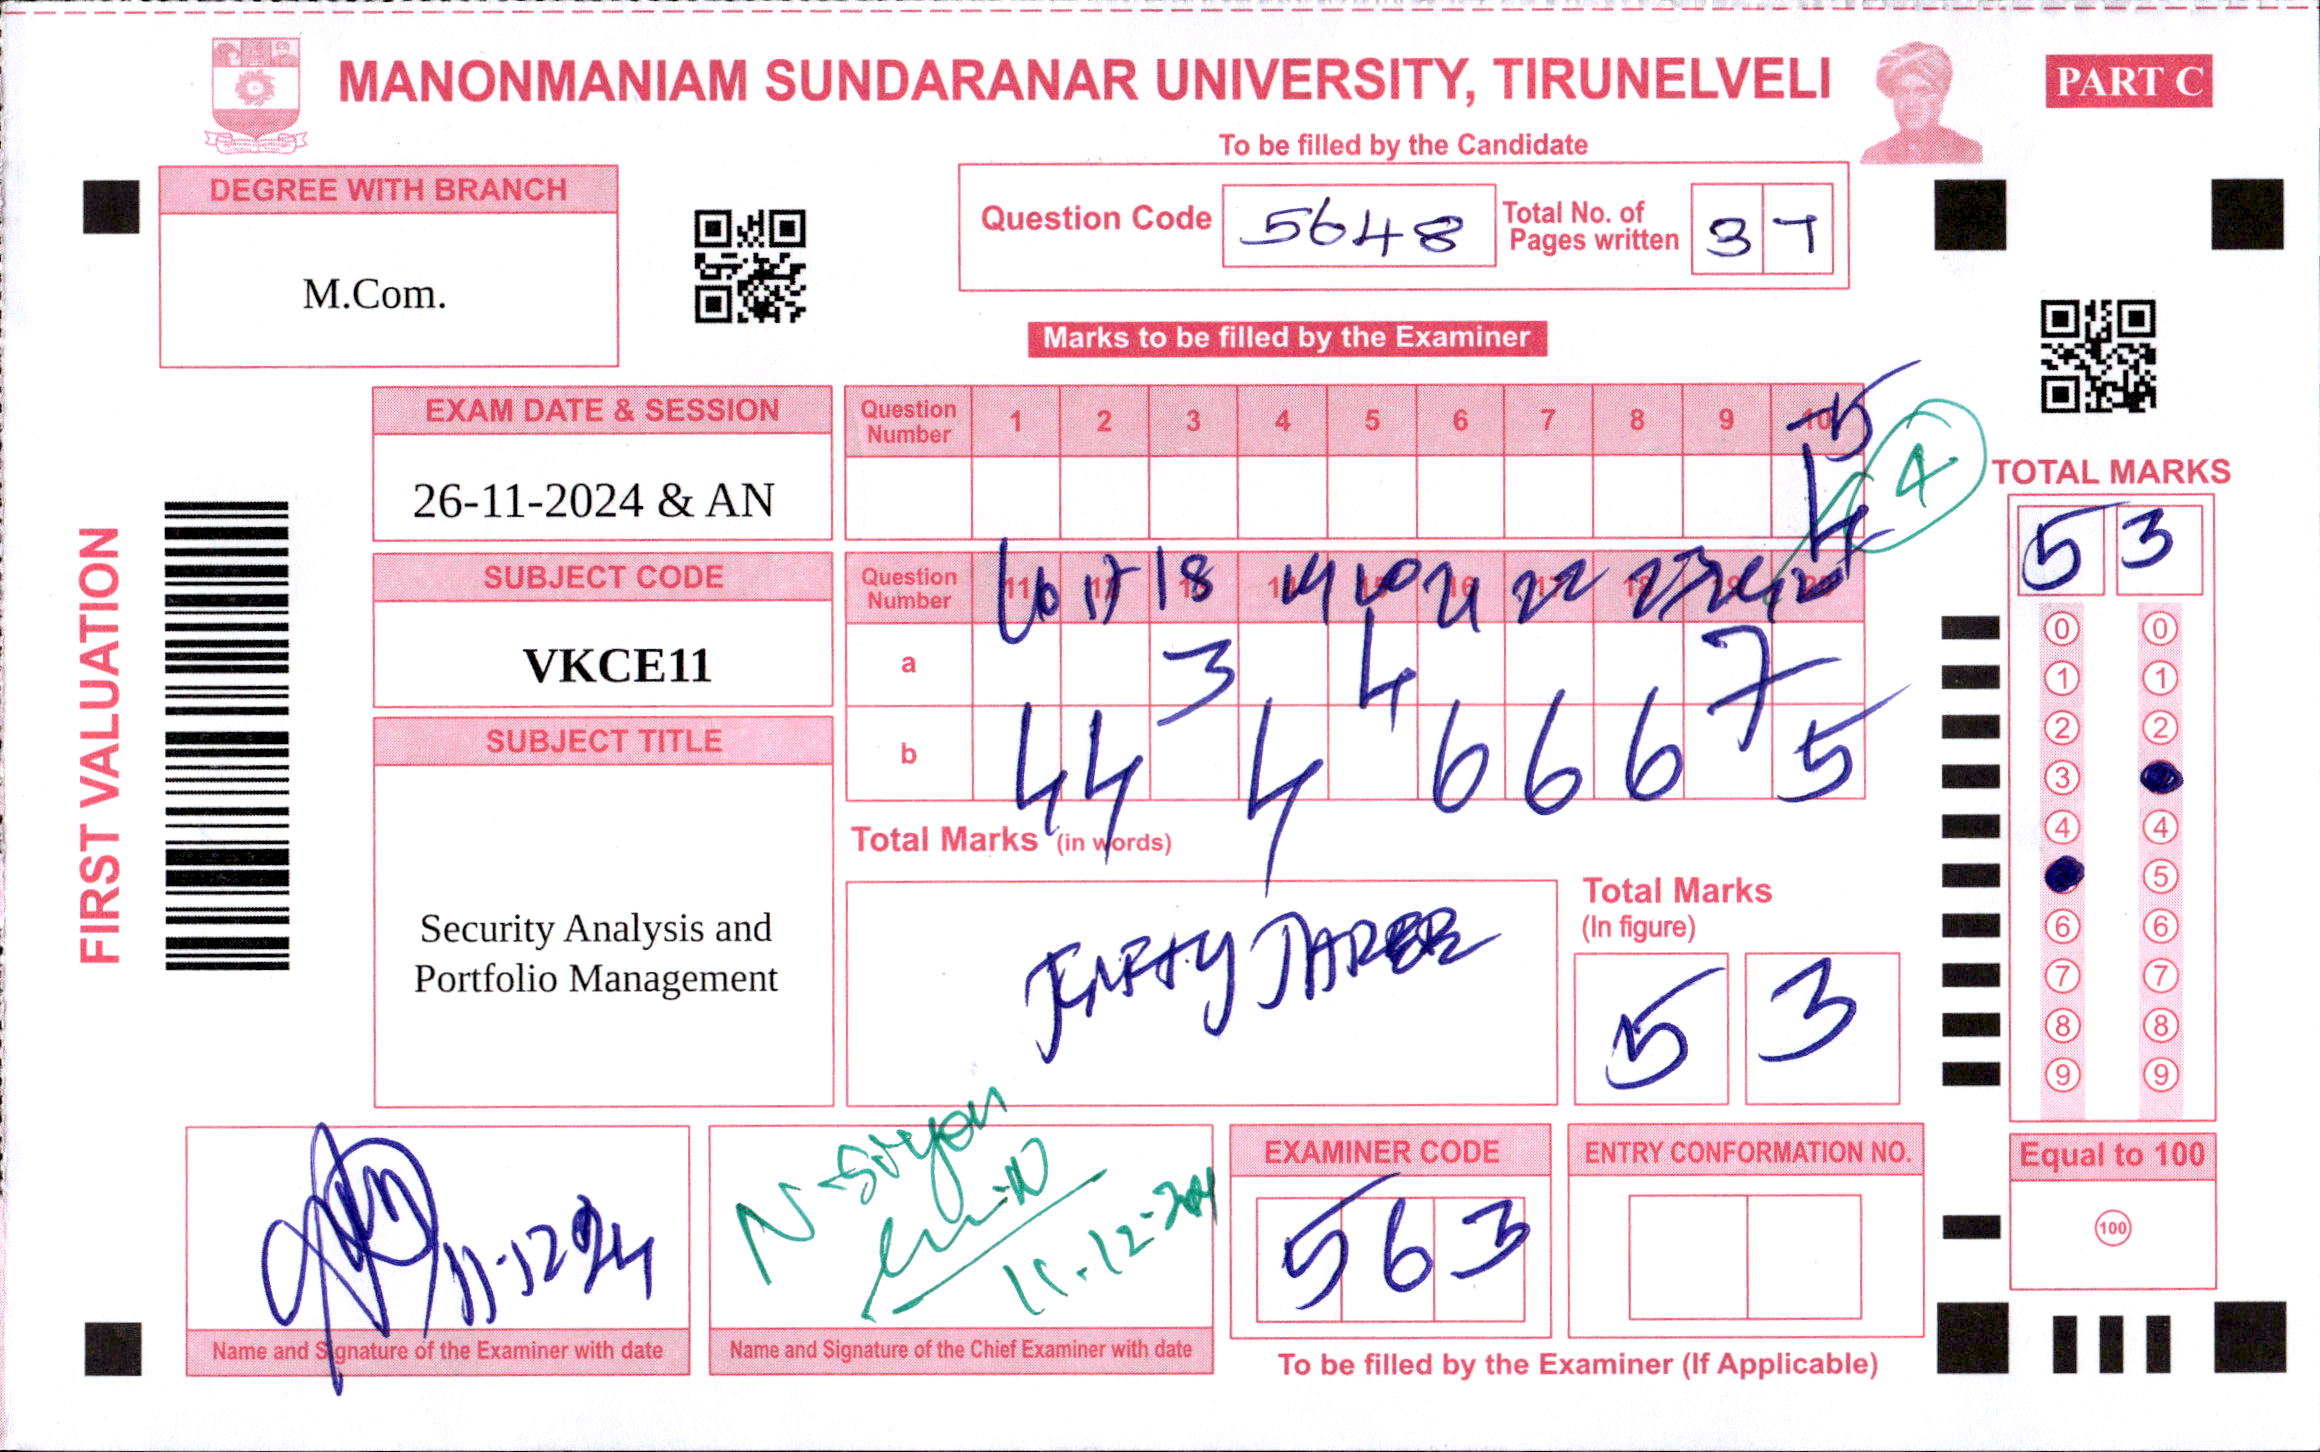 MANONMANIAM SUNDARANAR UNIVERSITY, TIRUNELVELI
PART C
To be filled by the Candidate
DEGREE WITH BRANCH
M.Com.
Question Code 5648 Total No. of Pages written 37
Marks to be filled by the Examiner
EXAM DATE & SESSION
26-11-2024 & AN
Question Number 1 2 3 4 5 6 7 8 9 10
5
4
4
TOTAL MARKS
53
FIRST VALUATION
SUBJECT CODE
VKCE11
Question Number 16 17 18 19 20 21 22 23 24
a 3 4 7
b 4 4 4 6 6 6 5
SUBJECT TITLE
Security Analysis and
Portfolio Management
Total Marks (in words)
Total Marks
(In figure)
5 3
0 0
1 1
2 2
3
4 4
5
6 6
7 7
8 8
9 9
11-12-24
Name and Signature of the Examiner with date
11-12-2024
Name and Signature of the Chief Examiner with date
EXAMINER CODE
563
ENTRY CONFORMATION NO.
To be filled by the Examiner (If Applicable)
Equal to 100
100